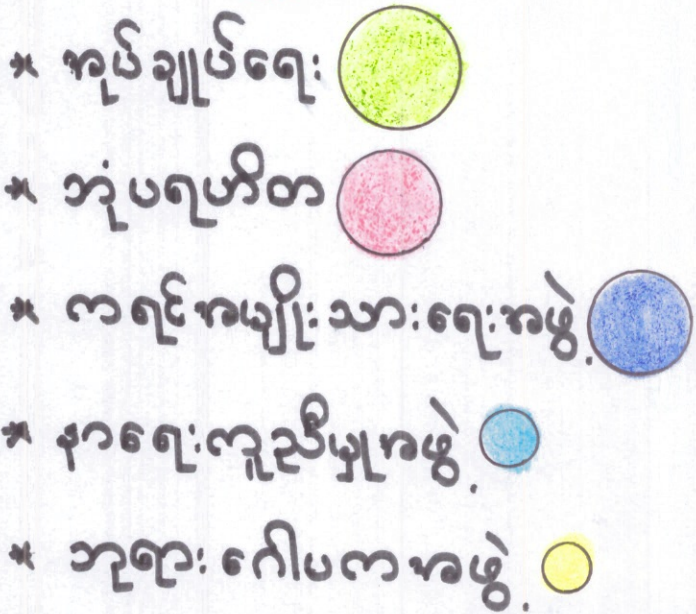 * အုပ်ချုပ်ရေး
* ဘုံပရဟိတ
* ကရင်အမျိုးသားရေးအဖွဲ့
* နာရေးကူညီမှုအဖွဲ့
* ဘုရားဂေါပကအဖွဲ့